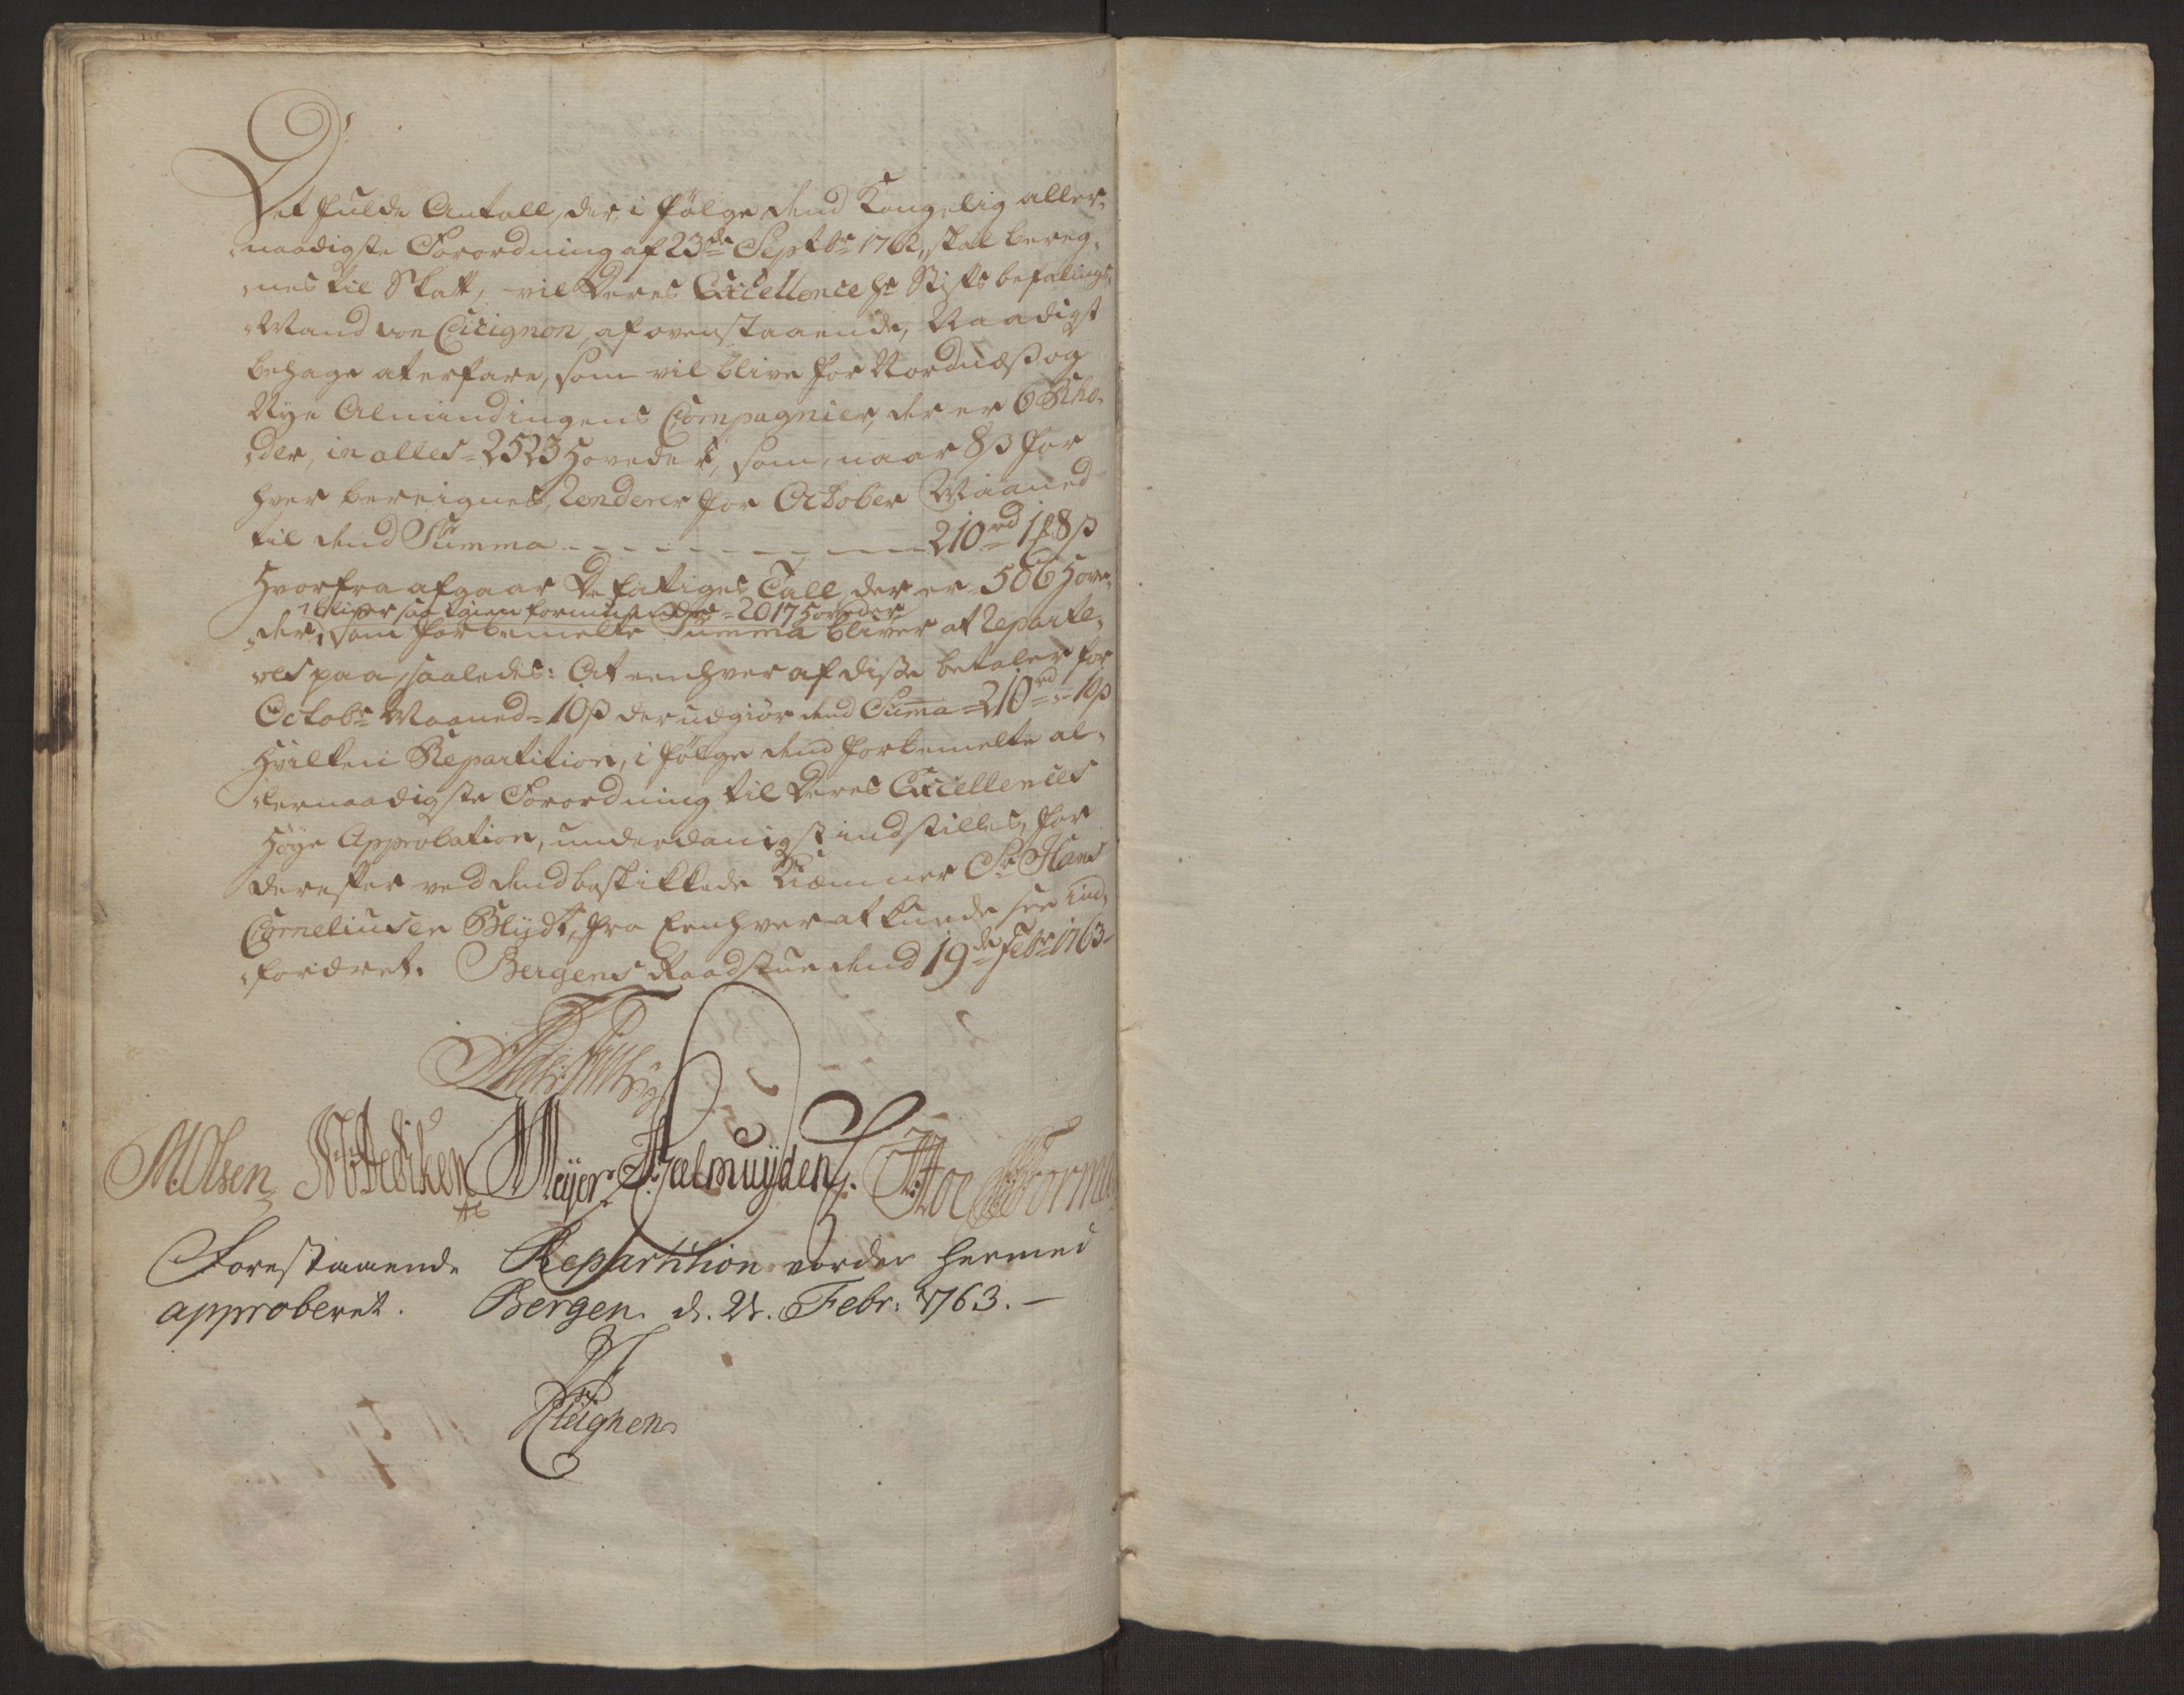 Det fulde Antall, der, i følge dend Kongelig aller,,
naadigste Forordning af 23de Septbr 1762,, skal bereg,,
,,nes til Skatt, vil Deres Excellence Hr Stiftsbefalings,,
,,Mand von Cicignon, af ovenstaaende, Naadigst
behage at erfare, som vil blive for Nordnæs og
Nye Almindingens Compagnier, der er 6 Rho,,
,,der, in alles = 2523 Hoveder, som, naar 8 ß for
hver bereignes, renderer for October Maaned
til dend Summa - - - - - - - - 210 rd 1 ℔ 8 ß
Hvorfra afgaar De fattiges Tall, der er = 506 Hove,,
bliver saa igien formuende = 2017 Hoveder
,,der, som forbemelte Summa bliver at reparte,,
,,res paa, saaledes: At eenhver af disse betaler for
Octobr Maaned = 10 ß der udgiør dend Suma = 210 rd = " = 10 ß
Hvilken Repartition, i følge dend forbemelte al,,
,,lernaadigste Forordning til Deres Excellences
Høye Approbation, underdanigst indstilles, for
derefter ved dend beskikkede Kiæmner Sr Hans
Corneliusen Blydt, fra Eenhver at kunde see ind,,
,,fordret. Bergens Raadstue dend 19de Febr 1763
M. Olsen Meyer Fr: Jælmuyden
Forestaaende Repartition vorder hermed
approberet. Bergen d. 21. Febr: 1763. —
Cicignon